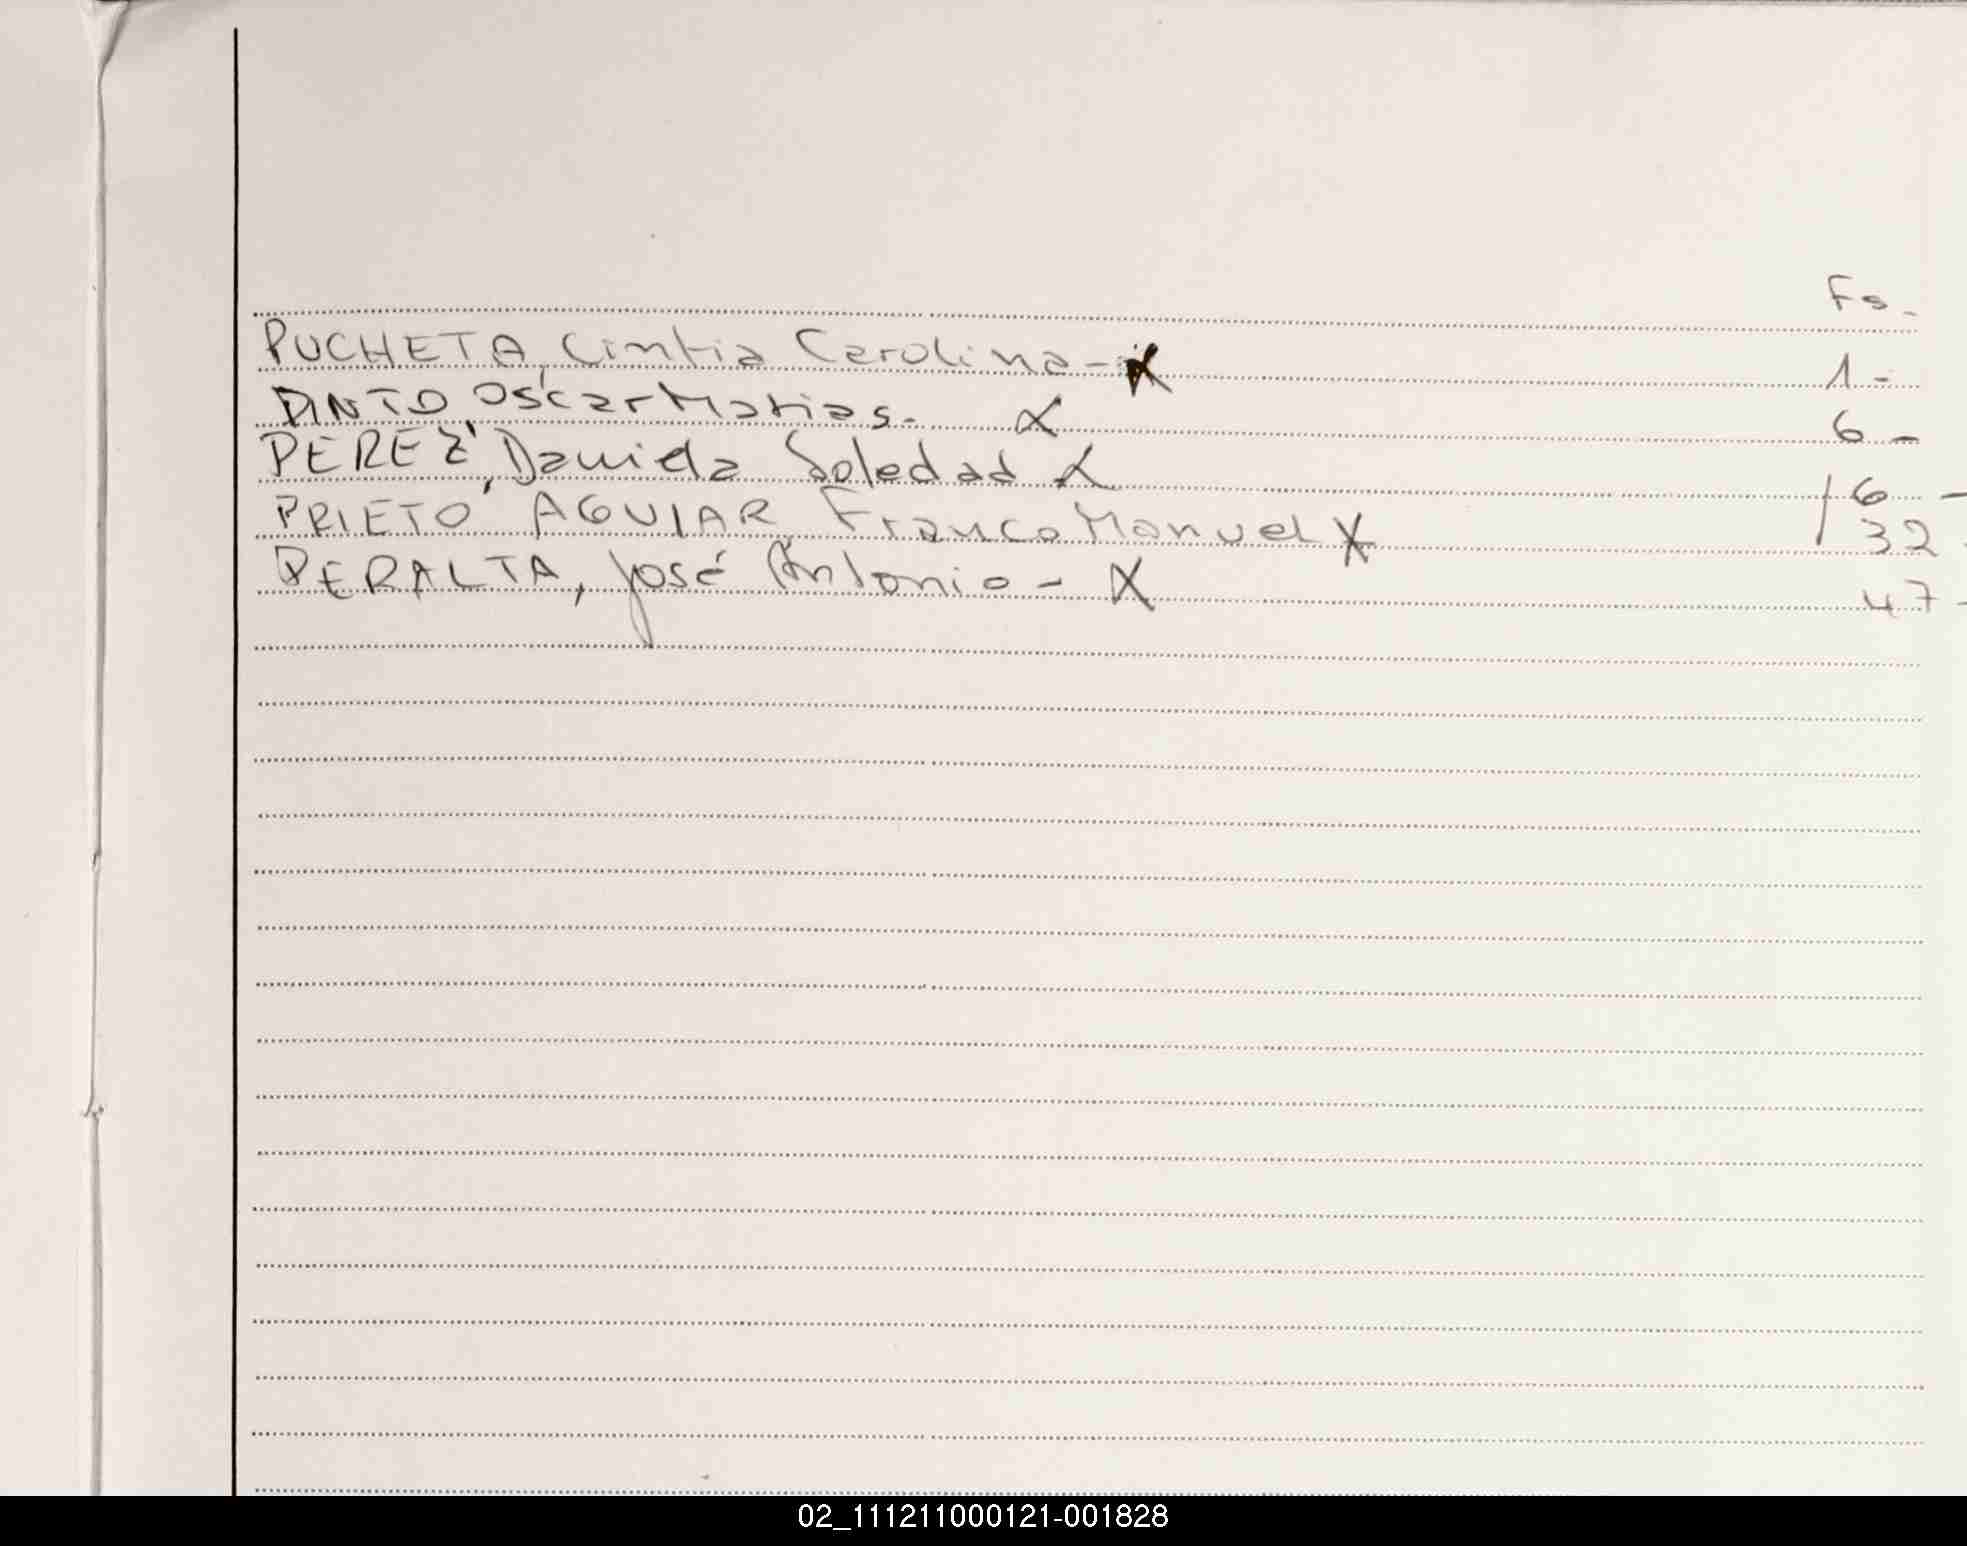 Fs.
PUCHETA, Cintia Carolina - X 1 -
PINTO, Oscar Matias. X 6 -
PEREZ, Daniela Soledad X 16 -
PRIETO AGUIAR Franco Manuel X 32 -
PERALTA, José Antonio - X 47 -
02_111211000121-001828